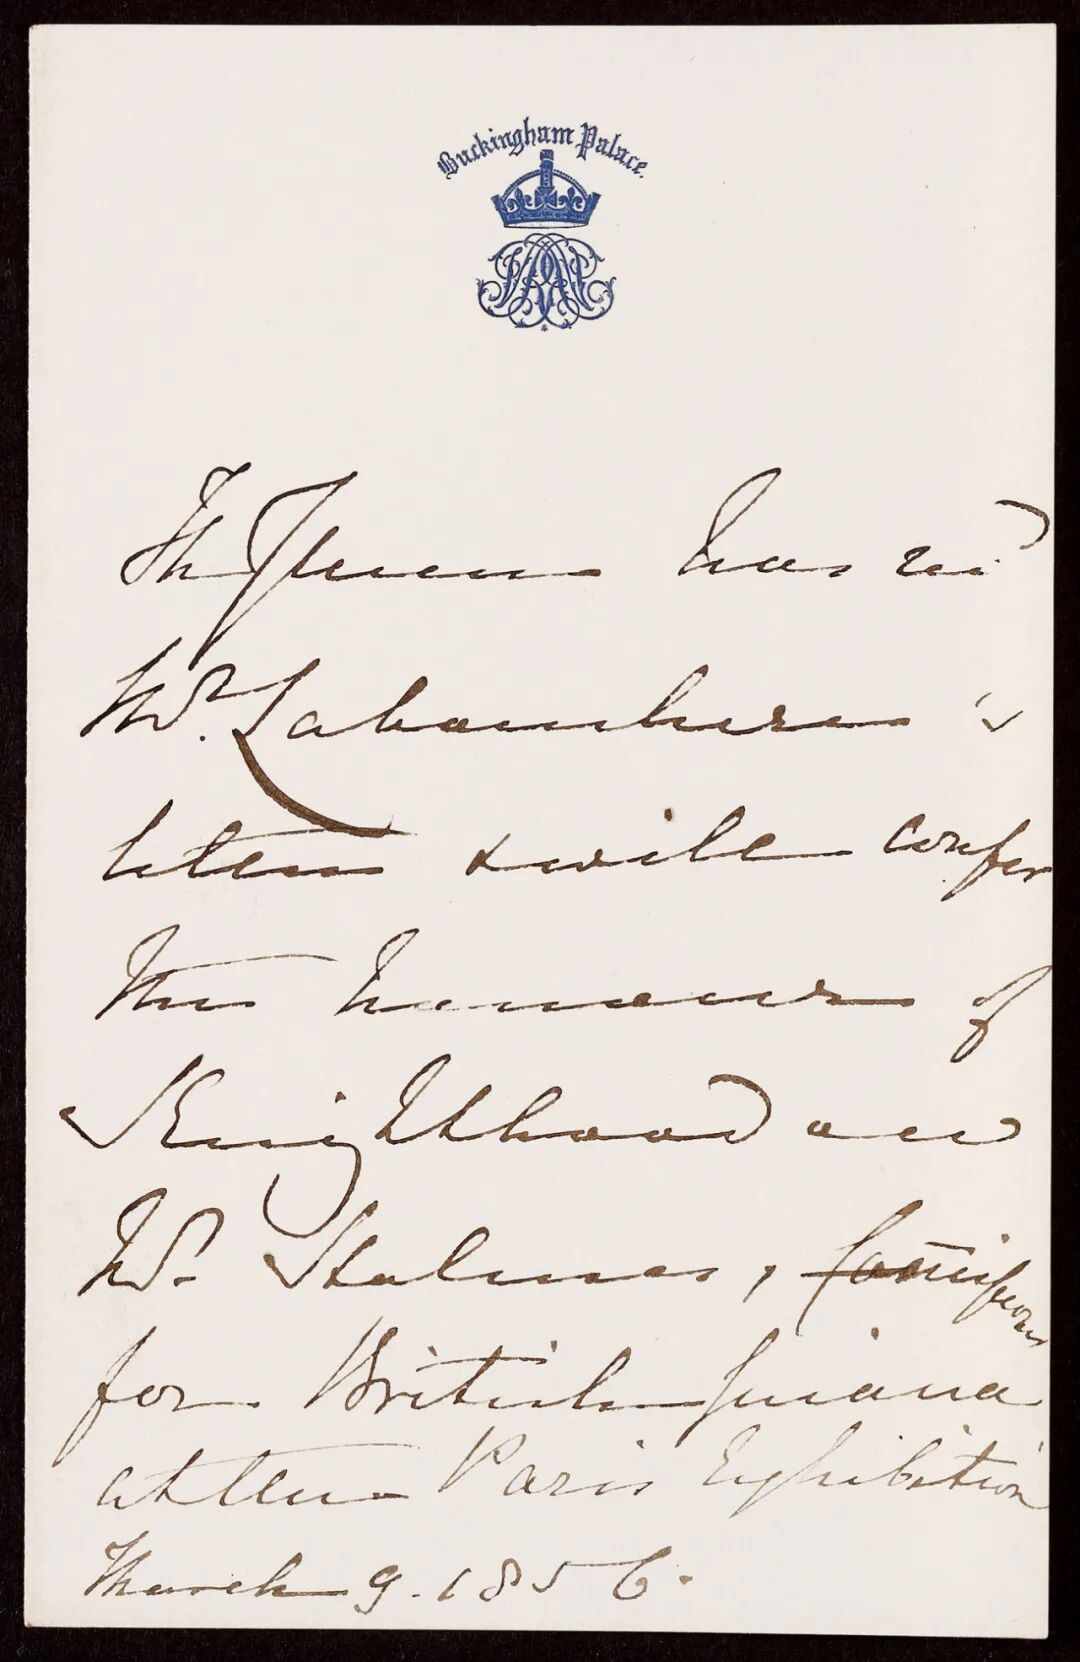 Buckingham Palace.
The Queen has recd
Mr. Labouchere's
letter & will confer
the honour of
Knighthood on
Mr. Holmes, Commissioner
for British Guiana
at the Paris Exhibition
March 9. 1856.